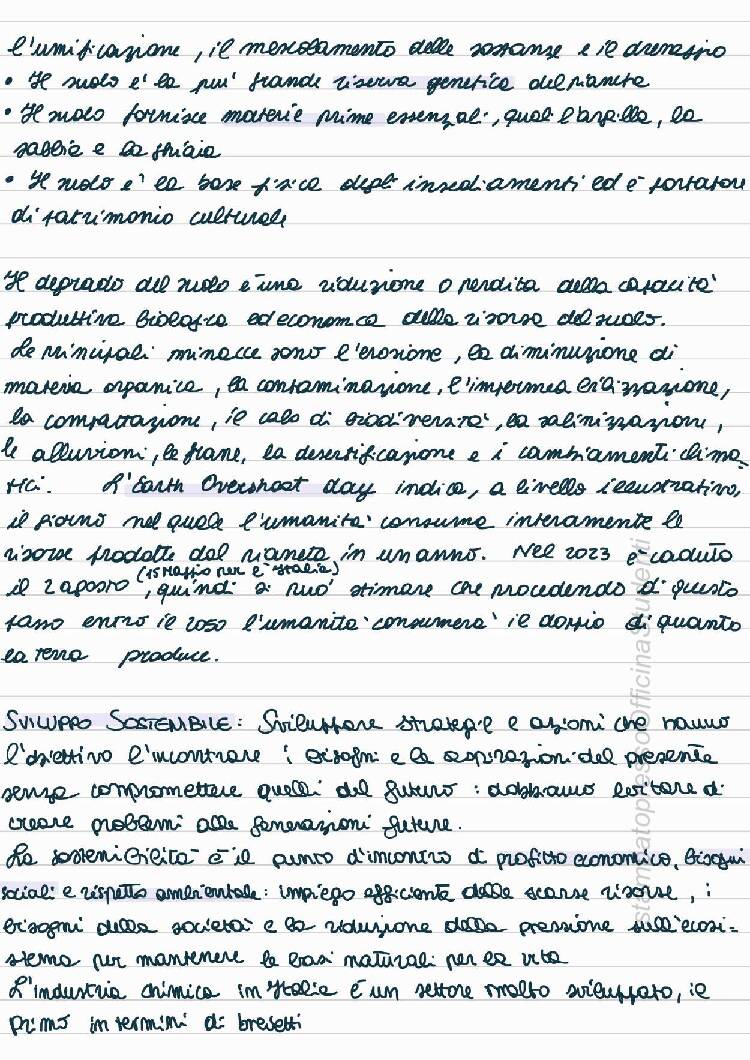 l'umificazione, il mescolamento delle sostanze e il drenaggio
• Il suolo e' la piu' grande riserva genetica del pianeta
• Il suolo fornisce materie prime essenzali, quali l'argilla, la
sabbia e la ghiaia
• Il suolo e' la base fisica degli insediamenti ed è portatore
di patrimonio culturale
Il degrado del suolo è una riduzione o perdita della capacità
produttiva biologica ed economica della risorsa del suolo.
Le principali minacce sono l'erosione, la diminuzione di
materia organica, la contaminazione, l'impermeabilizzazione,
la compattazione, il calo di biodiversità, la salinizzazione,
le alluvioni, le frane, la desertificazione e i cambiamenti clima-
tici. L'Earth Overshoot day indica, a livello illustrativo,
il giorno nel quale l'umanità consuma interamente le
risorse prodotte dal pianeta in un anno. Nel 2023 è caduto
(15 Maggio per l'Italia)
il 2 agosto, quindi si può stimare che procedendo di questo
passo entro il 2050 l'umanità consumerà il doppio di quanto
la terra produce.
SVILUPPO SOSTENIBILE: Sviluppare strategie e azioni che hanno
l'obiettivo l'incontrare i bisogni e la aspirazioni del presente
senza compromettere quelli del futuro: dobbiamo evitare di
creare problemi alle generazioni future.
La sostenibilità è il punto d'incontro di profitto economico, bisogni
sociali e rispetto ambientale: impiego efficiente delle scarse risorse, i
bisogni della società e la riduzione della pressione sull'ecosi-
stema per mantenere le basi naturali per la vita
L'industria chimica in Italia è un settore molto sviluppato, il
primo in termini di brevetti
stampatopressoOfficinaStudenti